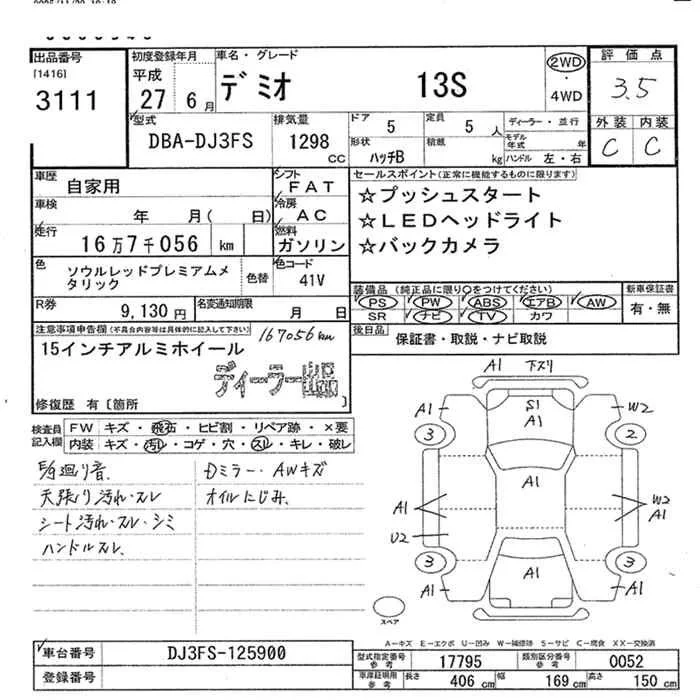 出品番号
[1416]
3111
初度登録年月
平成
27 6月
車名・グレード
デミオ 13S
2WD
・
4WD
評価点
3.5
外装 内装
C C
型式
DBA-DJ3FS
排気量
1298
CC
ドア
5
定員
5 人
ディーラー・並行
モデル年式 年
形状
ハッチB
積載
kg
ハンドル 左・右
車歴
自家用
シフト
FAT
車検
年 月( 日)
冷房
AC
走行
16万7千056 km
燃料
ガソリン
色
ソウルレッドプレミアムメタリック
色替
色コード
41V
R券
9,130 円
名変通知期限
月 日
セールスポイント(正常に機能するものに限ります)
☆プッシュスタート
☆LEDヘッドライト
☆バックカメラ
装備品 (純正品に限り○をつけてください)
新車保証書
PS PW ABS エアB AW
SR ナビ TV カワ
有・無
後日品
保証書・取説・ナビ取説
注意事項申告欄(不具合内容等は具体的に記入して下さい)
167056km
15インチアルミホイール
ディーラー出品
修復歴 有〔箇所 〕
検査員記入欄
FW キズ・飛石・ヒビ割・リペア跡・×要
内装 キズ・汚れ・コゲ・穴・スレ・キレ・破レ
天張り汚れ・スレ
シート汚れ・スレ・シミ
ハンドルスレ
Dミラー・AWキズ
オイルにじみ
A1 下スリ
A1 S1 A1 W2
3 2
A1
A1 W2 A1
U2
3 3
A1 A1 A1
スペア
A－キズ E－エクボ U－凹み W－補修跡 S－サビ C－腐食 XX－交換済
車台番号
DJ3FS-125900
登録番号
型式指定番号
参考
17795
類別区分番号
参考
0052
車庫証明用
参考
長さ
406 cm
幅
169 cm
高さ
150 cm